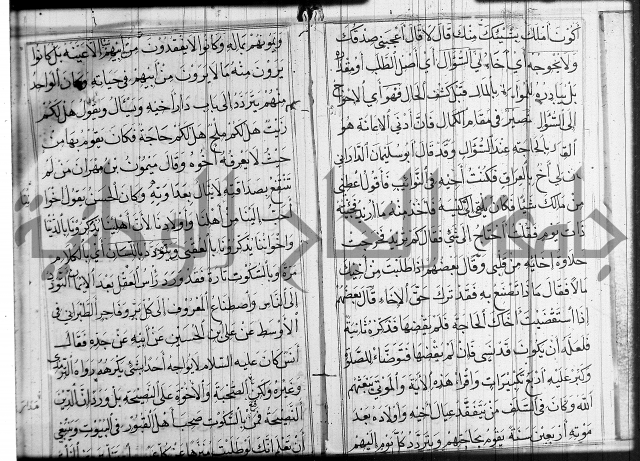 أكون أملك بشيئك منك قال لا قال أعجبني صدقك
ولا يحوجه أي أخاه إلى السؤال أي أصل الطلب أو
بل يبادره للمواساة بالمال قبل كشف الحال فهو أي الاحوج
إلى السؤال في مقام الكمال فان أدنى الاعانة هو
بالحاجة عند السؤال وقد قال أبو سليمان الداراني
كان لي أخ بالعراق فكنت أجيه في النوائب فأقول أعطني
من مالك شيئا فكان يلقي إلي كيسه فآخذ منه ما أريد فجئته
ذات يوم فقلت أحتاج إلى شيء فقال كم تريد فخرجت
حلاوة إخائه من قلبي وقال بعضهم إذا طلبت من أخيك
مالا فقال ماذا تصنع به فقد ترك حق الإخاء قال بعضهم
إذا استقضيت أخاك الحاجة فلم يقضها فذكره ثانية
فلعله أن يكون قد نسي فان لم يقضها فتوضأ للصلوة
وكبر عليه أربع تكبيرات واقرأ هذه الآية والموتى يبعثهم
الله وكان في السلف من يتفقد عيال أخيه وأولاده بعد
موته أربعين سنة يقوم بحاجتهم ويتردد كل يوم إليهم
ويمونهم بماله وكانوا لا يفقدون من أبيهم إلا عينه بل كانوا
يرون منه ما لا يرون من أبيهم في حياته وكان الواحد
منهم يتردد إلى باب دار أخيه ويسأل ويقول هل لكم
زيت هل لكم ملح هل لكم حاجة فكان يقوم بها من
حيث لا يعرفه أخوه وقال ميمون بن مهران من لم
تنتفع بصداقته لا تبال بعداوته وكان الحسن يقول اخواننا
أحب إلينا من أهلنا وأولادنا لأن أهلنا يذكرونا بالدنيا
واخواننا يذكرونا بالعقبى ويتودد باللسان أي بالكلام
مرة وبالسكوت تارة فقد ورد رأس العقل بعد الايمان التودد
إلى الناس واصطناع المعروف إلى كل بر وفاجر الطبراني في
الأوسط عن علي بن الحسين عن أبيه عن جده فقال
أنس كان عليه السلام لا يواجه أحدا بشيء يكرهه رواه الترمذي
وغيره ولكن الصحبة والأخوة على النصيحة بل ورد ان الدين
النصيحة فمن بالسكوت صحب أهل القبور في البيوت وينبغي